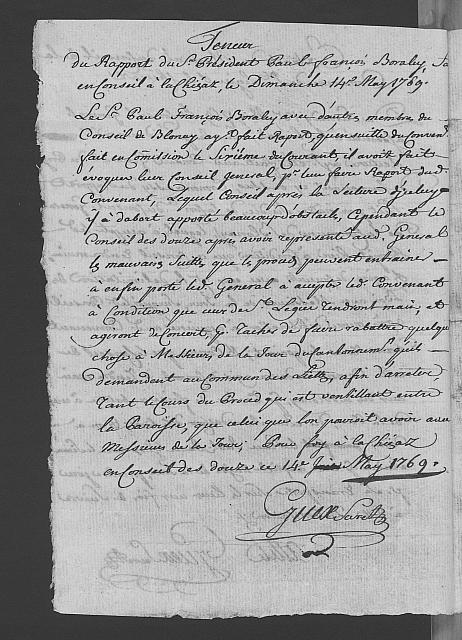 Teneur
du Rapport du Sr. Président Paul François Boraley,
en Conseil à la Chiéaz, le Dimanche 14e. May 1769.
Le Sr. Paul François Boraley avec d'autres membres du
Conseil de Blonay ay fait Raport, qu'ensuitte du Conven
fait en Comission le Sixiéme du Courant, il avoit fait
évoquer leur Conseil general, pr. leur faire Raport dud.
Convenant, Lequel Conseil après la Lecture d'iceluy
y à dabort apporté beaucoup d'obstacles, Cependant le
Conseil des douze après avoir representé aud. General
les mauvaises Suittes que le procés peuvent entrainer
à enfin porté led. General à accepter led. Convenant
à Condition que ceux de St. Legier Tendront main, et
agiront de Concert, Tacher de faire rabattre quelque
chose à Messieurs de la Tour, du Cantonnemt. qu'il
demandent au Commun des afin d'arreter
Tant le Cours du Procés qui est ventillant entre
la Paroisse, que celui que lon pouroit avoir avec
Messieurs de la Tour; Pour foy à la Chiéaz
en Conseil des douze ce 14e. May 1769.